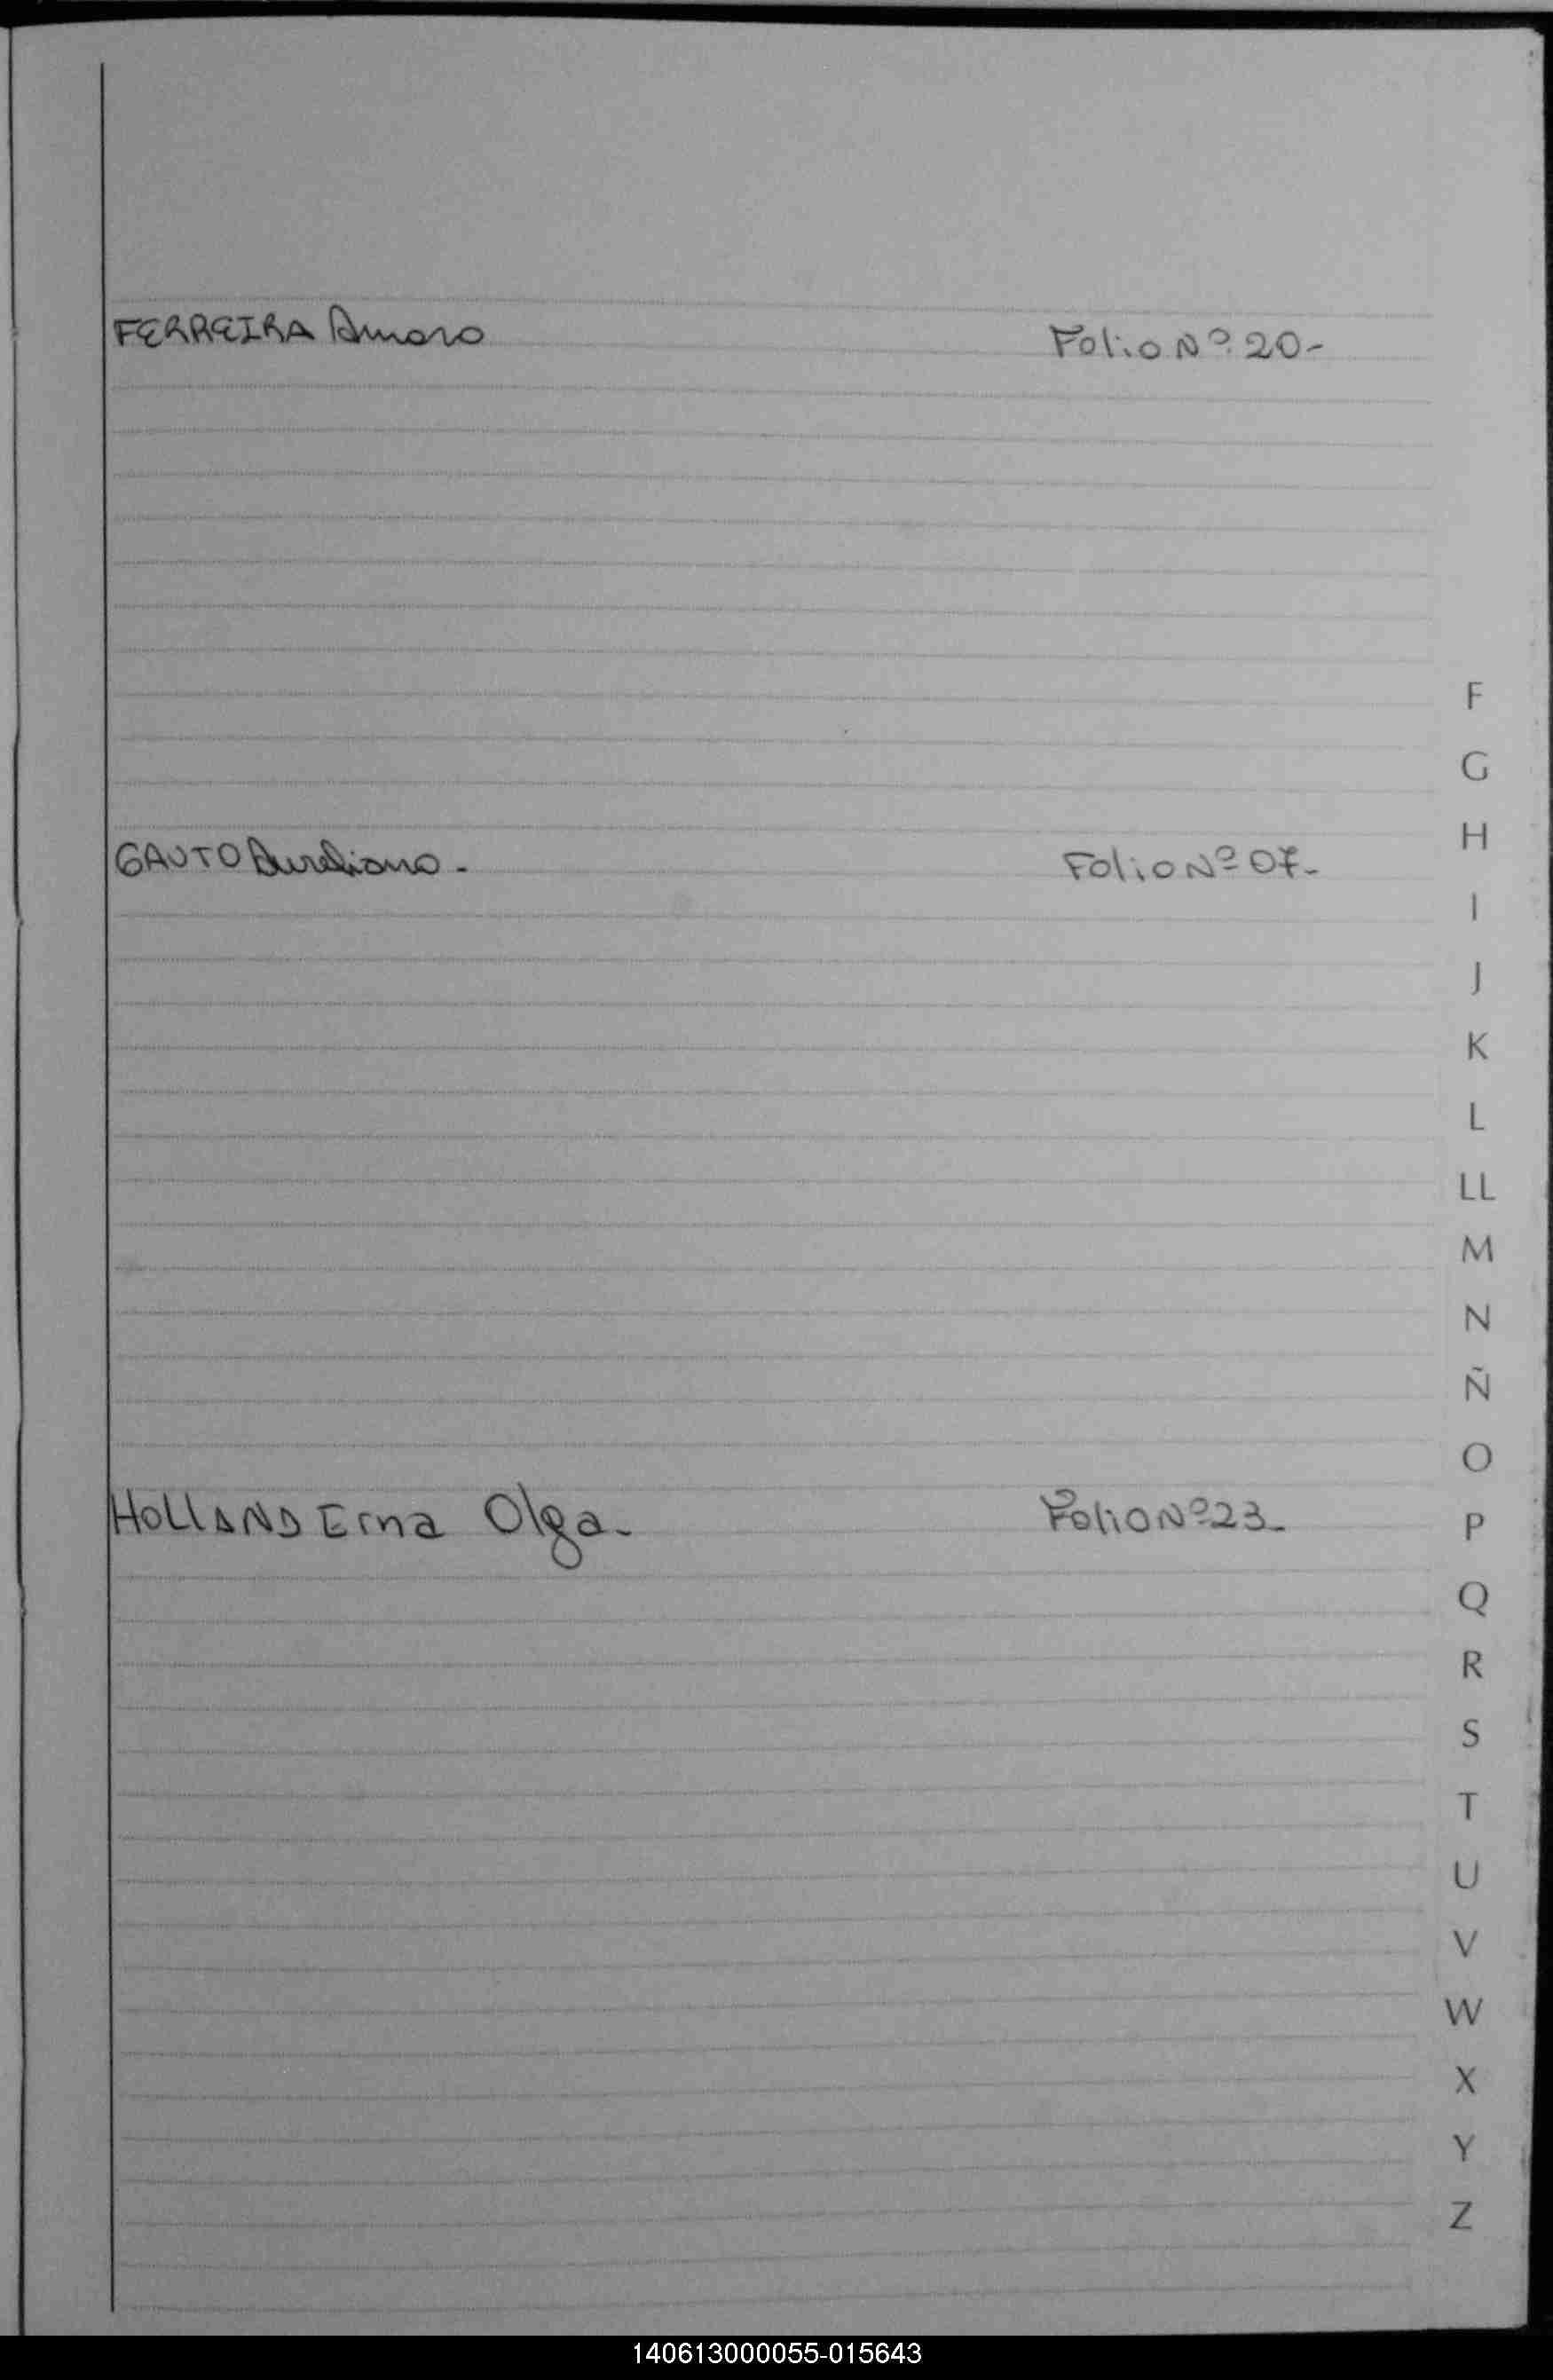 FERREIRA Amaro Folio Nº 20-
F
G
GAUTO Aureliano - Folio Nº 07-
H
I
J
K
L
LL
M
N
Ñ
O
HOLLAND Erna Olga- Folio Nº 23-
P
Q
R
S
T
U
V
W
X
Y
Z
140613000055-015643